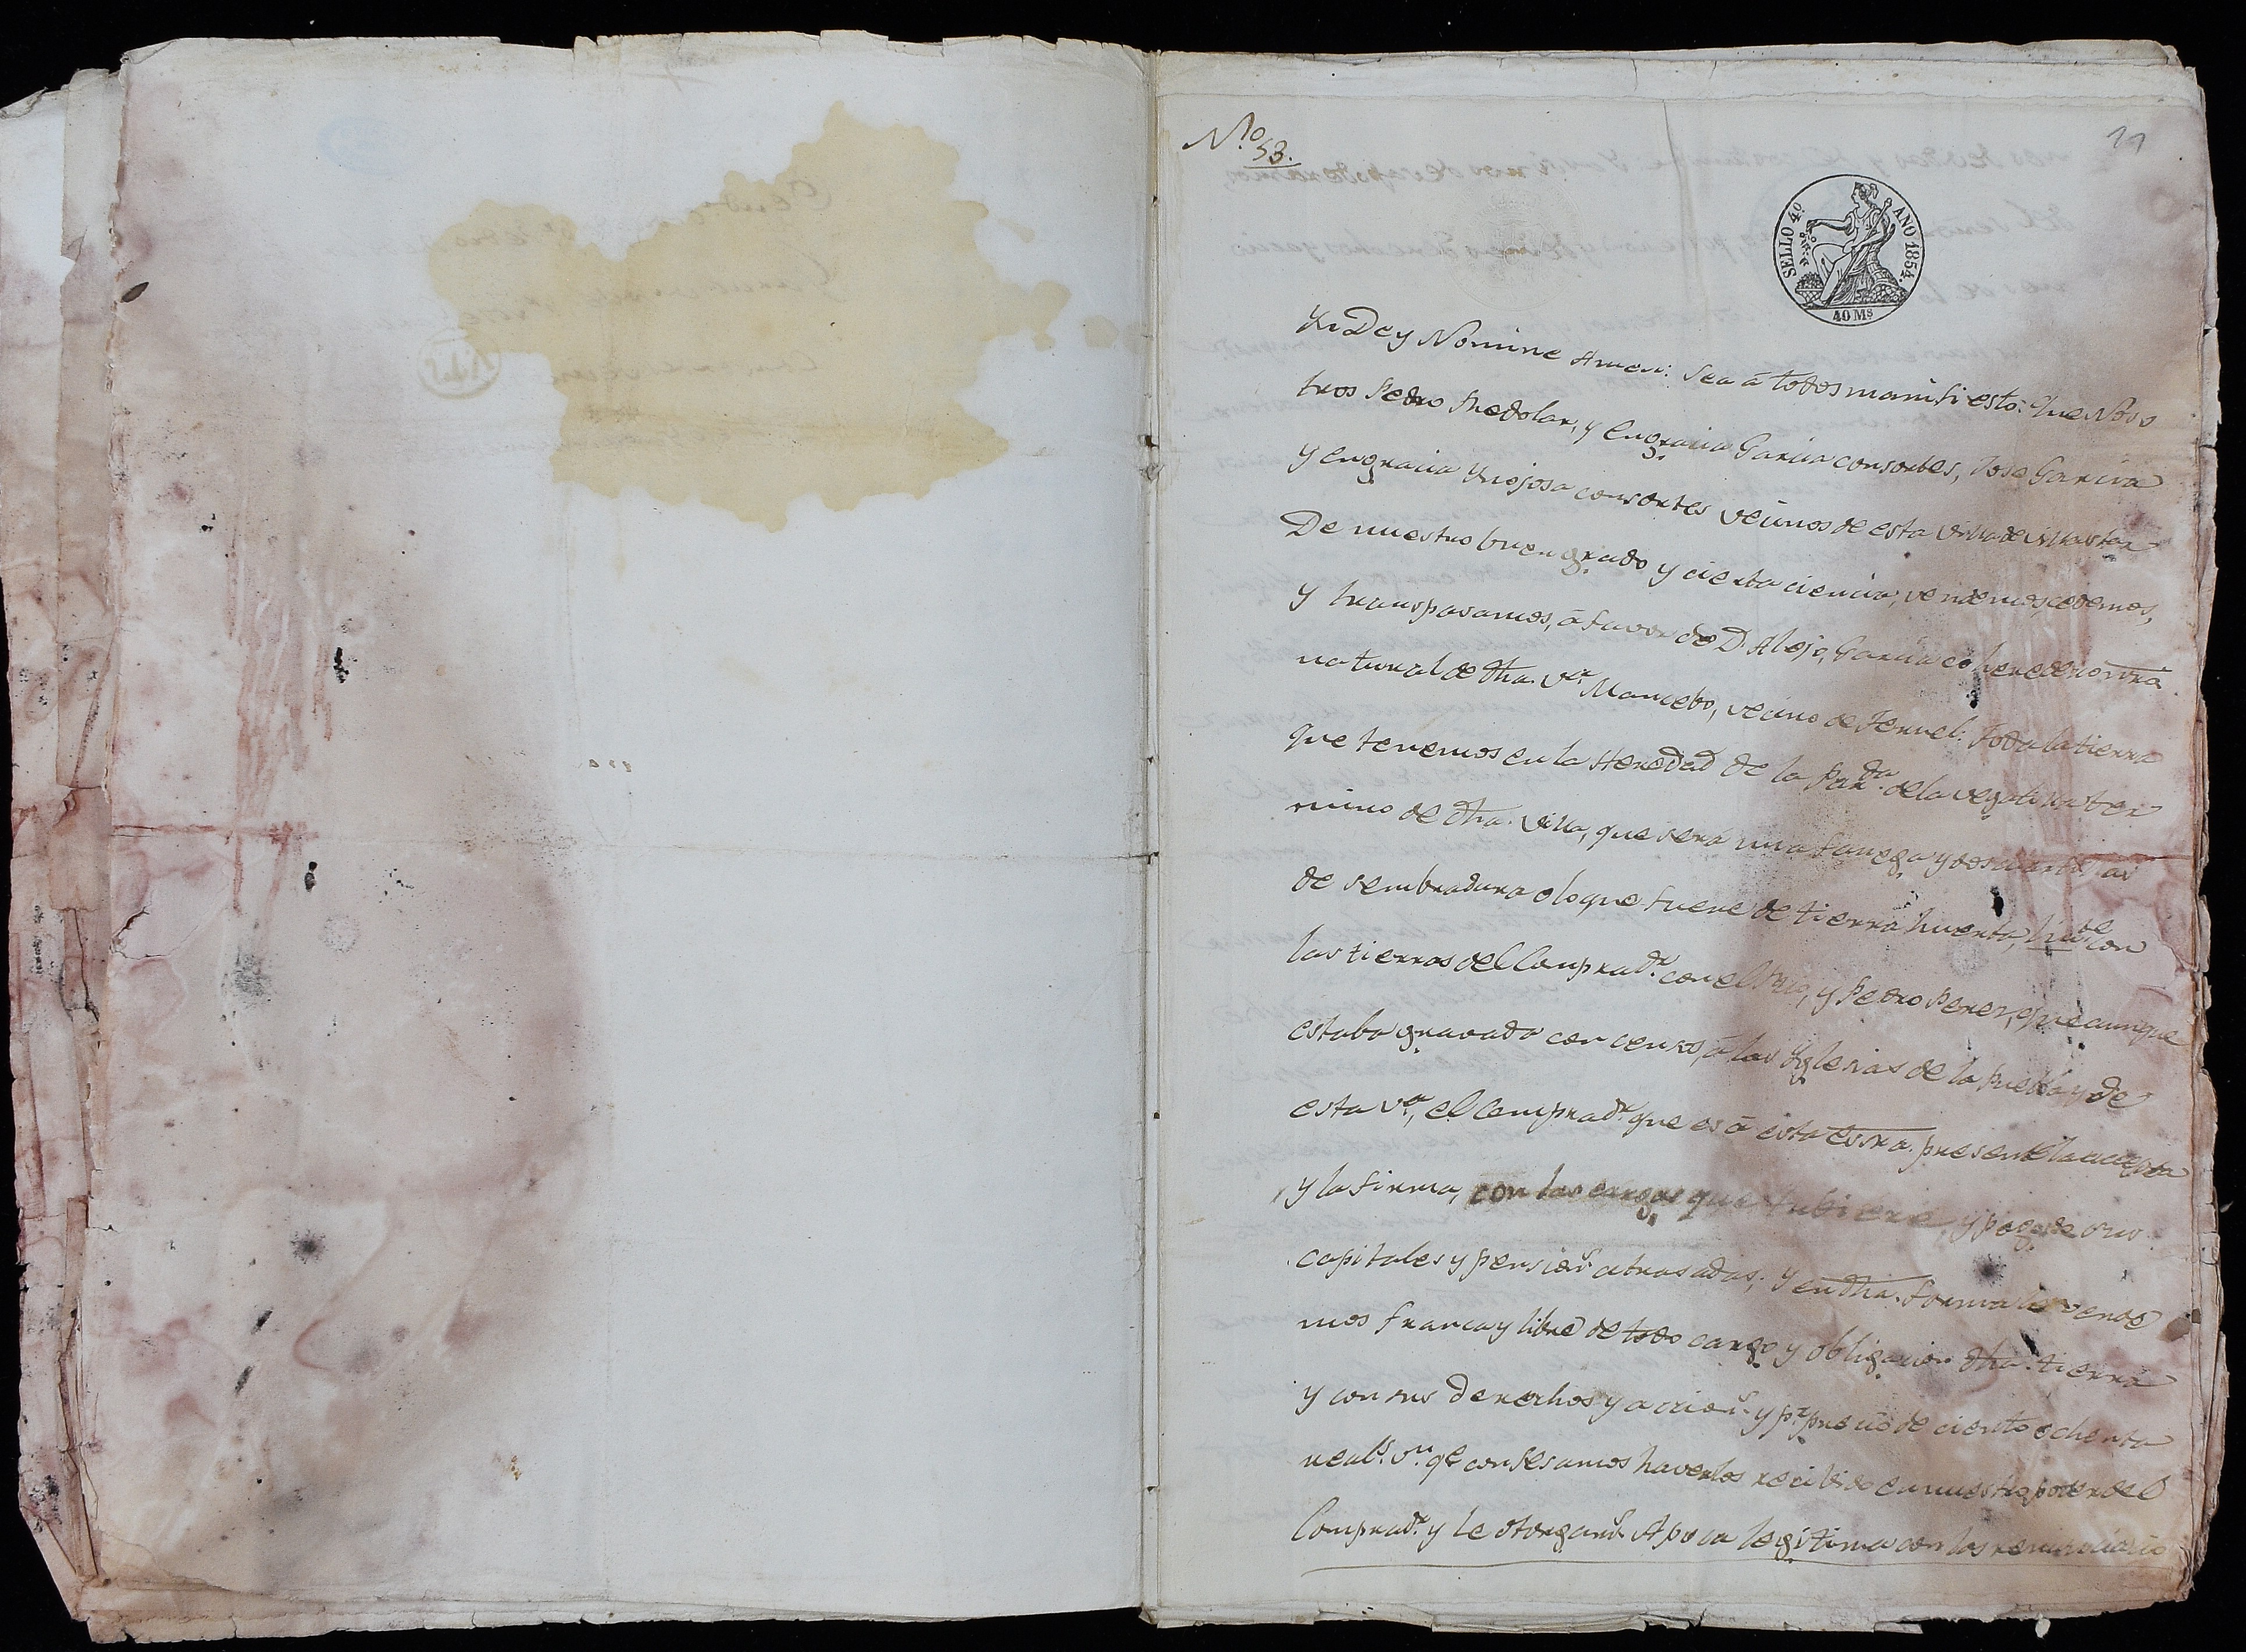 N.º 53.
11
SELLO 4º. AÑO 1854.
40 Ms
Yn Dey Nomine Amen: Sea á todos manifiesto: Que Noso
tros Pedro Predolar, y Engracia Garcia consortes, Jose Garcia
y engracia Ynojosa consortes vecinos de esta villa de Villastar
De nuestro buen grado y cierta ciencia, vendemos, cedemos,
y transpasamos, á favor de D. Alejo, Garcia co heredero ntrō
natural de dha. Vª. Mancebo, vecino de Teruel: Toda la tierra
que tenemos en la Heredad de la Parda. de la vegatilla ter
mino de dha. villa, que será una fanega y dos
de sembradura o lo que fuere de tierra huerta, con
las tierras del Comprad.r con el Rio, y Pedro Perez, que aunque
estaba gravada con censo, á las Yglesias de la Puebla y de
esta Vª, el Comprad.r que es á esta essra. presente la accepta
y la firma, con las cargas que tubiere, y pago de sus
capitales y pensions atrasadas; Y en dha. forma le vende
mos franca y libre de todo cargo y obligacion dha. tierra
y con sus derechos y accions. y p.r precio de ciento ochenta
reals. vn. qe confesamos haverlos recibido en nuestro poder del
Comprad.r y le otorgams. Apoca legitima con las renunciacio